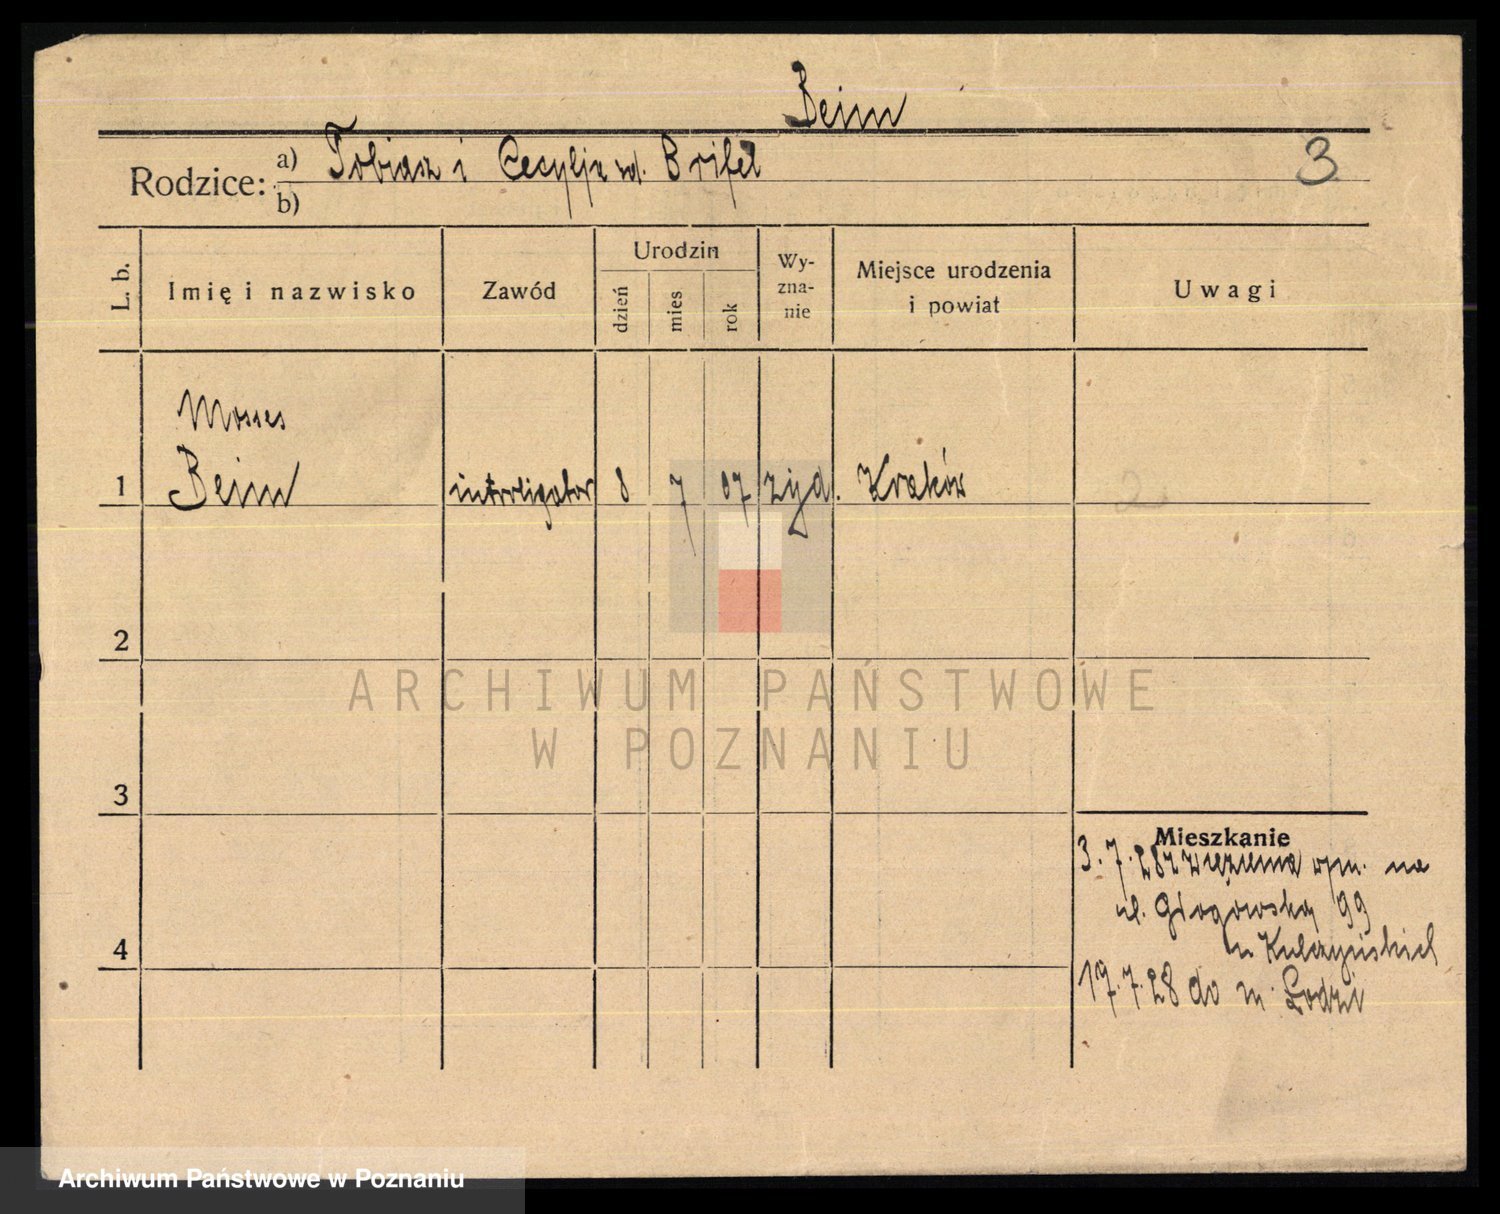 Beim
Rodzice: a) Tobiasz i Cecylja zd. Brifel
3
b)
L. b.
Imię i nazwisko
Zawód
Urodzin
dzień
mies
rok
Wy-
zna-
nie
Miejsce urodzenia
i powiat
Uwagi
Moses
1 Beim introligator 8 7 07 żyd. Kraków
2
2
3
4
Mieszkanie
3.7.28 z więzienia na
ul. Głogowską 99
u Kulczyńskich
19.7.28 do m. Łodzi
ARCHIWUM PAŃSTWOWE
W POZNANIU
Archiwum Państwowe w Poznaniu